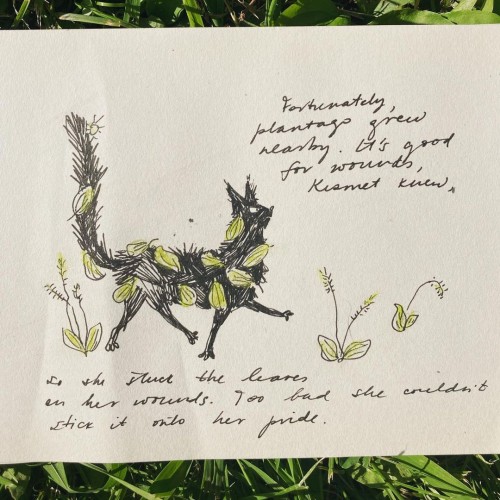 Fortunately,
plantago grew
nearby. It's good
for wounds,
Kismet knew.
So she stuck the leaves
on her wounds. Too bad she couldn't
stick it onto her pride.